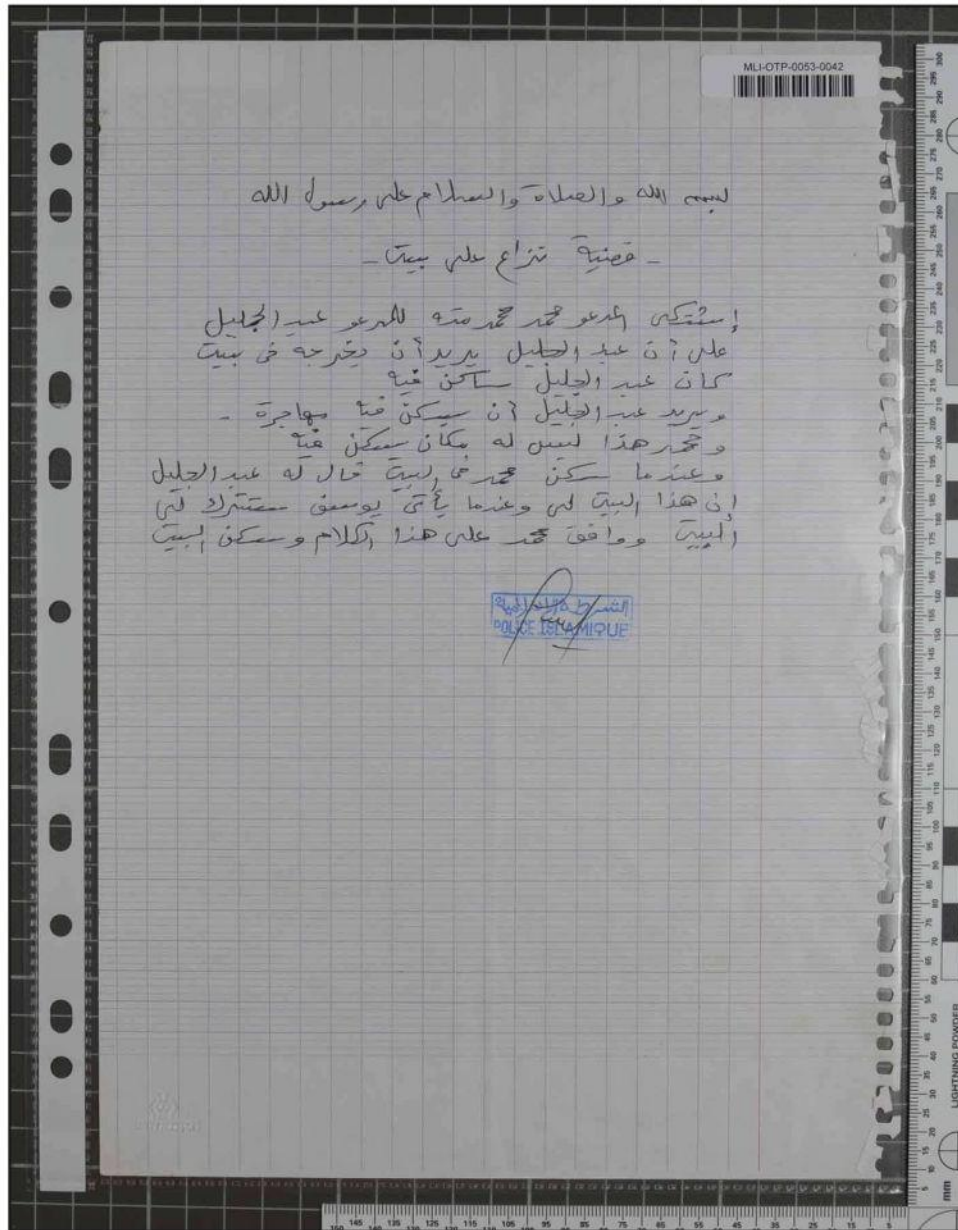 MLI-OTP-0053-0042
بسم الله والصلاة والسلام على رسول الله
- قضية نزاع على بيت -
إشتكى المدعو محمد محمد للمدعو عبد الجليل
على أن عبد الجليل يريد أن يخرجه في بيت
كان عبد الجليل ساكن فيه
ويريد عبد الجليل أن يسكن فيه مهاجرة -
ومحمد هذا ليس له مكان يسكن فيه
وعندما سكن محمد في البيت قال له عبد الجليل
إن هذا البيت لي وعندما يأتي يوسف ستترك لي
البيت ووافق محمد على هذا الكلام وسكن البيت
الشرطة الإسلامية
POLICE ISLAMIQUE
LIGHTNING POWDER
mm